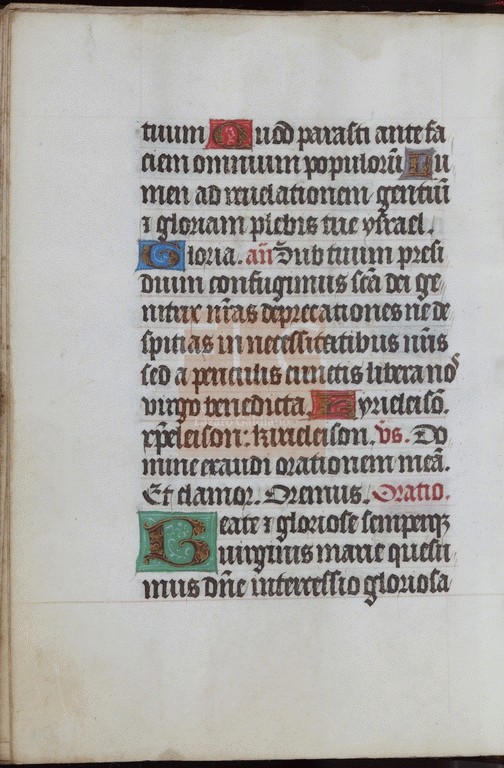 tuum Quod parasti ante fa
ciem omnium populorū Lu
men ad reuelationem gentiū
⁊ gloriam plebis tue ysrael.
Gloria. an̄ Sub tuum presi
dium confugimus sc̄a dei ge⸗
nitrix nr̄as deprecationes ne de⸗
spitias in necessitatibus nr̄is
sed a periculis cunctis libera nos
virgo benedicta. Kyrieleisō.
xp̄eleison: kirieleison. vs. Do
mine exaudi orationem meā.
Et clamor. Oremus. Oratio.
Beate ⁊ gloriose semperqꝫ
uirginis marie quesu
mus dn̄e intercessio gloriosa